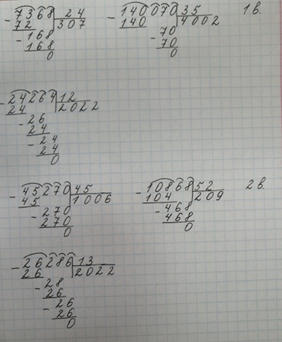 - 7368 | 24   - 140070 | 35   1 в.
72 | 307   140 | 4002
- 168   - 70
168   70
0   0
- 24264 | 12
24 | 2022
- 26
24
- 24
24
0
- 45270 | 45   - 10868 | 52   2 в.
45 | 1006   104 | 209
- 270   - 468
270   468
0   0
- 26286 | 13
26 | 2022
- 28
26
- 26
26
0